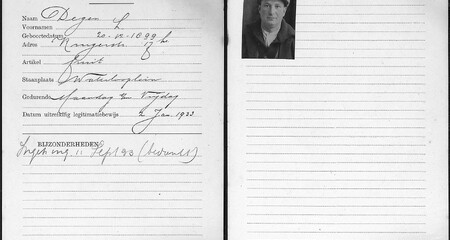 Naam Degen
Voornamen S
Geboortedatum 20-12-1899
Adres
Artikel fruit
Staanplaats Waterlooplein
Gedurende Maandag en Vrijdag
Datum uitreiking legitimatiebewijs 2 Jan. 1933
BIJZONDERHEDEN
11 Sept 33